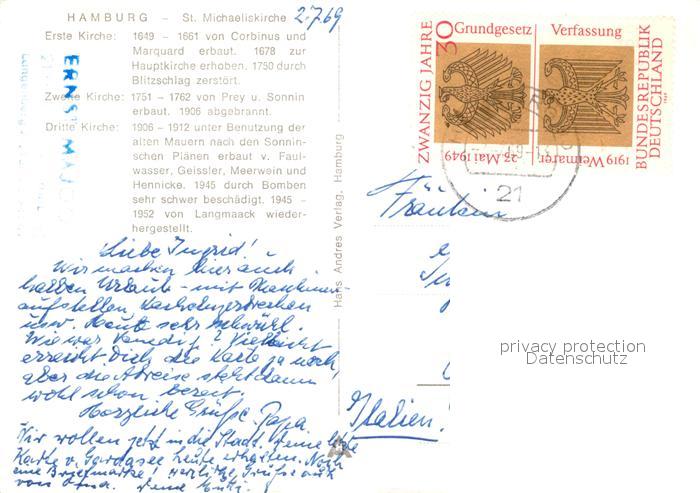 HAMBURG – St. Michaeliskirche
2.7.69
Erste Kirche: 1649 - 1661 von Corbinus und
Marquard erbaut. 1678 zur
Hauptkirche erhoben. 1750 durch
Blitzschlag zerstört.
Zweite Kirche: 1751 – 1762 von Prey u. Sonnin
erbaut. 1906 abgebrannt.
Dritte Kirche: 1906 – 1912 unter Benutzung der
alten Mauern nach den Sonnin-
schen Plänen erbaut v. Faul-
wasser, Geissler, Meerwein und
Hennicke. 1945 durch Bomben
sehr schwer beschädigt. 1945 -
1952 von Langmaack wieder-
hergestellt.
ERNST
Hans Andres Verlag, Hamburg
ZWANZIG JAHRE
30
Grundgesetz
23. Mai 1949
Verfassung
1919 Weimarer
BUNDESREPUBLIK
DEUTSCHLAND
21
Fräulein
Italien.
Liebe Ingrid!
Wir machen hier auch
halben Urlaub - mit
aufstellen,
usw. Heute sehr schwül.
Wie war Venedig? Vielleicht
erreicht Dich die Karte ja noch,
aber die Abreise steht dann
wohl schon bereit.
Herzliche Grüße Papa
Wir wollen jetzt in die Stadt. Deine liebe
Karte v. Gardasee heute erhalten. Noch
eine Briefmarke! Herzliche Grüße auch
von Oma. Deine Mutti.
privacy protection
Datenschutz